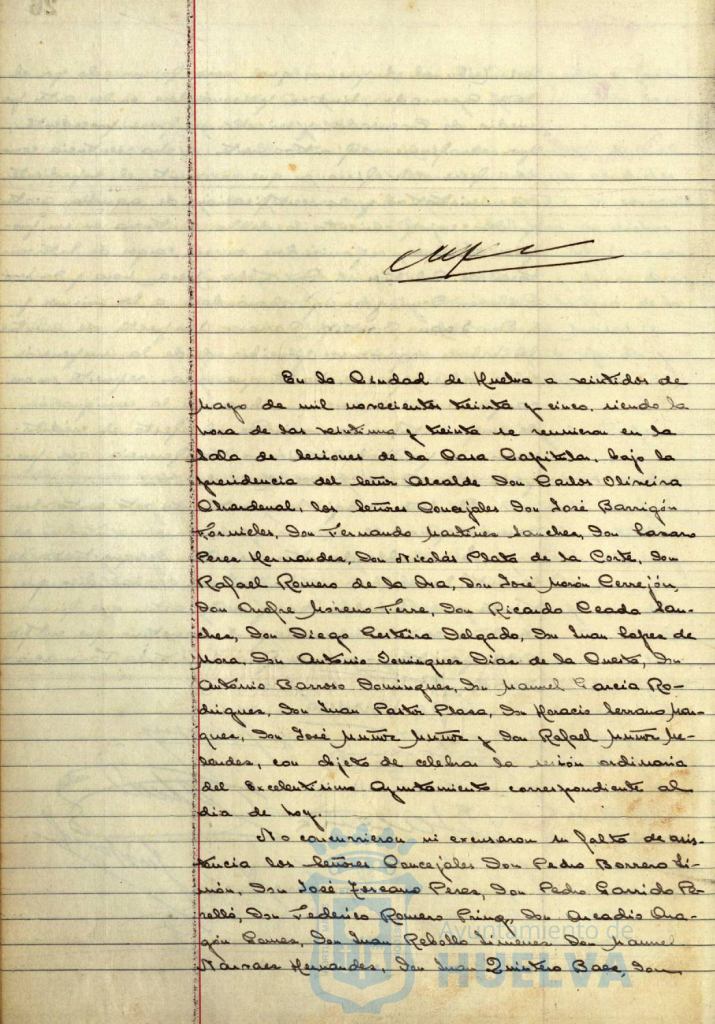 En la Ciudad de Huelva a veintidos de
Mayo de mil novecientos treinta y cinco, siendo la
hora de las veintiuna y treinta se reunieron en la
Sala de Sesiones de la Casa Capitular, bajo la
presidencia del Señor Alcalde Don Carlos Oliveira
Chardenal, los Señores Concejales Don José Barrigón
Fornieles, Don Fernando Martinez Sanchez, Don Lazaro
Perez Hernandez, Don Nicolás Plata de la Corte, Don
Rafael Romero de la Osa, Don José Morón Cerrejón,
Don Onofre Moreno Ferre, Don Ricardo Ceada San-
chez, Don Diego Lesteira Delgado, Don Juan Lopez de
Mora, Don António Dominguez Diaz de la Cueta, Don
António Barroso Dominguez, Don Manuel Garcia Ro-
driguez, Don Juan Pastor Plaza, Don Horacio Serrano Mar-
quez, Don José Muñoz Muñoz y Don Rafael Muñoz Me-
lendez, con objeto de celebrar la sesión ordinaria
del Excelentisimo Ayuntamiento correspondiente al
dia de hoy.
No concurrieron ni excusaron su falta de asis-
tencia los Señores Concejales Don Pedro Borrero Li-
món, Don José Toscano Perez, Don Pedro Garrido Pe-
relló, Don Federico Romero Prinq, Don Arcadio Ara-
gón Gomez, Don Juan Rebollo Jimenez Don Manuel
Narvaez Hernandez, Don Juan Quintero Baez, Don
Ayuntamiento de
HUELVA